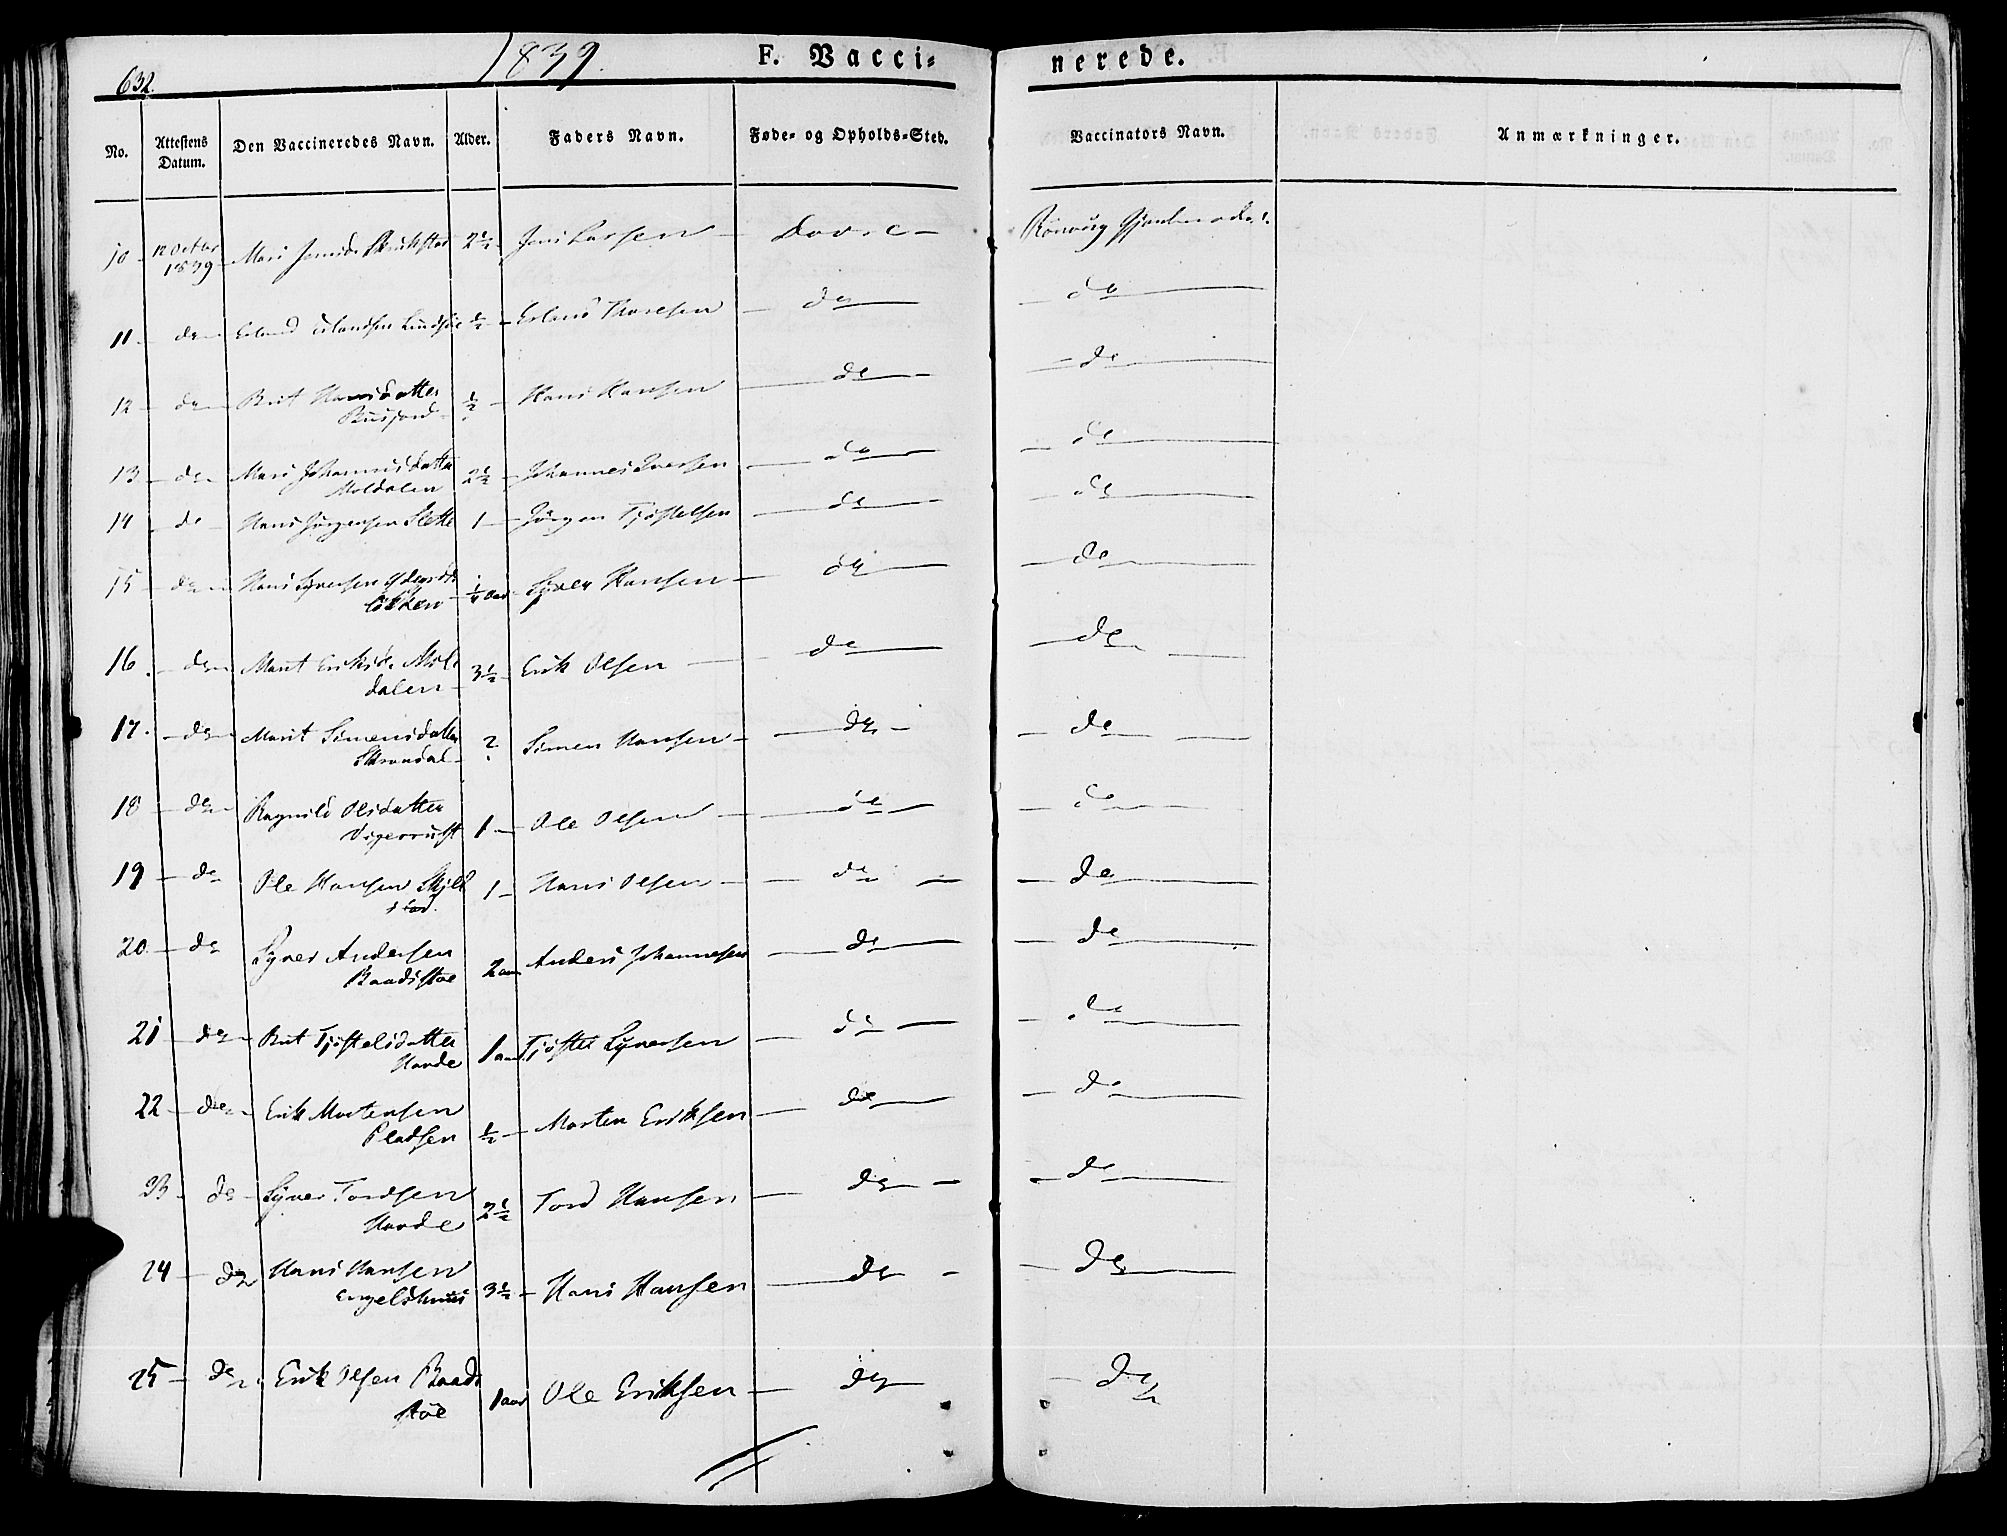 632.
1839.
F. Vacci=
nerede.
No.
Attestens Datum.
Den Vaccineredes Navn.
Alder.
Faders Navn.
Føde- og Opholds-Sted.
Vaccinators Navn.
Anmærkninger.
10 12 Octbr 1839 Mari Jensd. 2½ Jens Larsen Dovre Rönnoug
11 do Erland Erlandsen ½ Erland Thoresen do do
12 do Brit Hansdatter ½ Hans Hansen do do
Busjord
13 do Mari Johannisdatter 2½ Johannes Iversen do do
Moldalen
14 do Hans Jörgensen Slette 1 Jörgen Tjöstelsen do do
15 do Hans Syversen ¼ aar Syver Hansen do do
lökken
16. do Marit Eriksd. Mol 3½ Erik Olsen do do
dalen
17. do Marit Simensdatter ? Simen Hansen do do
18 do Ragnild Olsdatter 1 Ole Olsen do do
Vigerrust
19 do Ole Hansen 1 Hans Olsen do do
20 do Syver Andersen 2 aar Anders Johannesen do do
Baadstöe
21 do Brit Tjöstelsdatter 1 aar Tjöstel Syversen do do
Haade
22 do Erik Mortensen ½ Morten Eriksen do do
Pladsen
23 do Syver Tordsen 2½ Tord Hansen do do
Haade
24 do Hans Hansen 3½ Hans Hansen do do
Engelshuus
25 do Erik Olsen Baad 1 aar Ole Eriksen do do
stöe